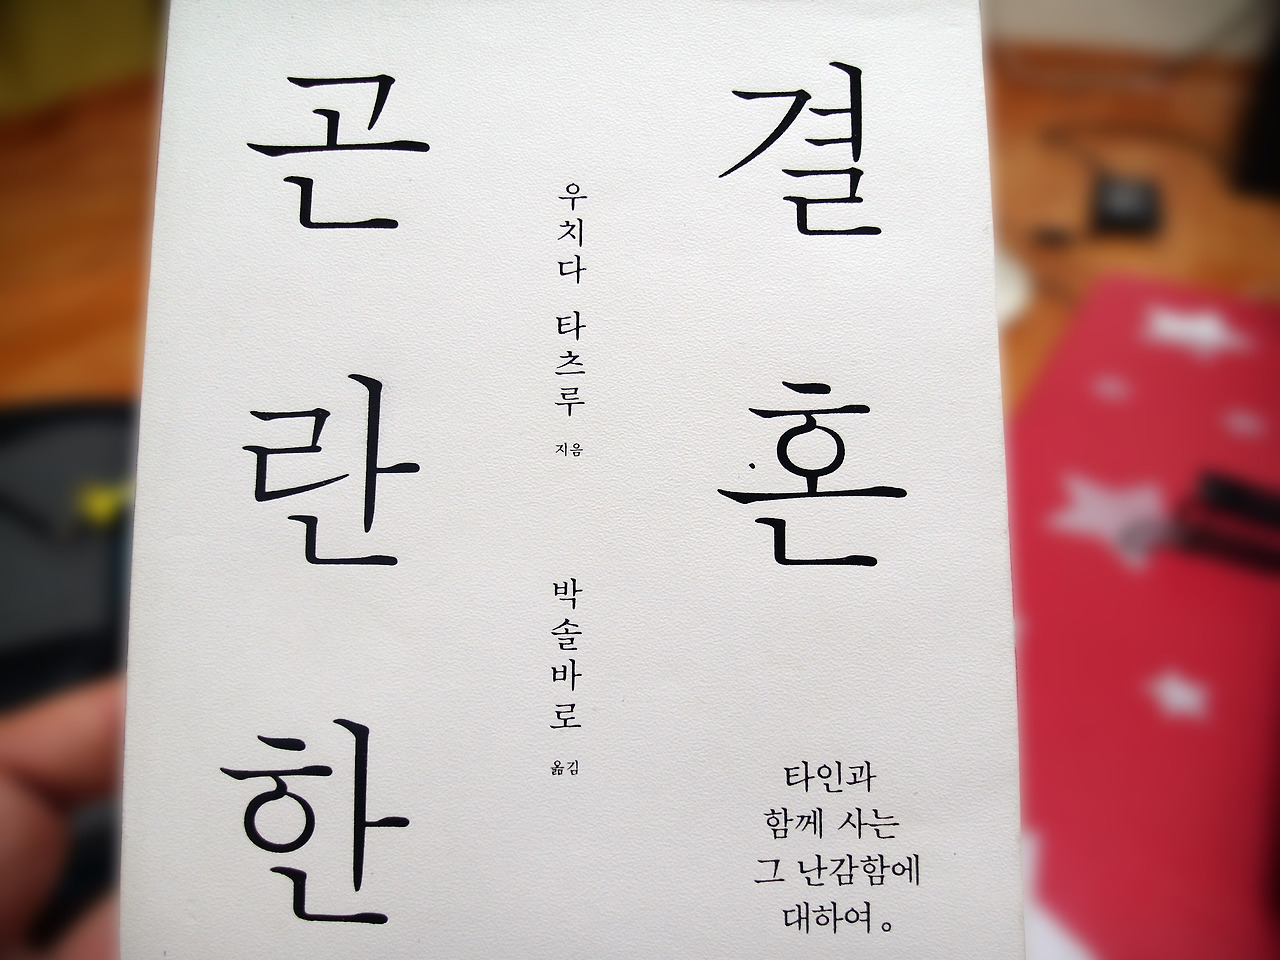 곤란한
결혼
우치다 타츠루 지음
박솔바로 옮김
타인과
함께 사는
그 난감함에
대하여。